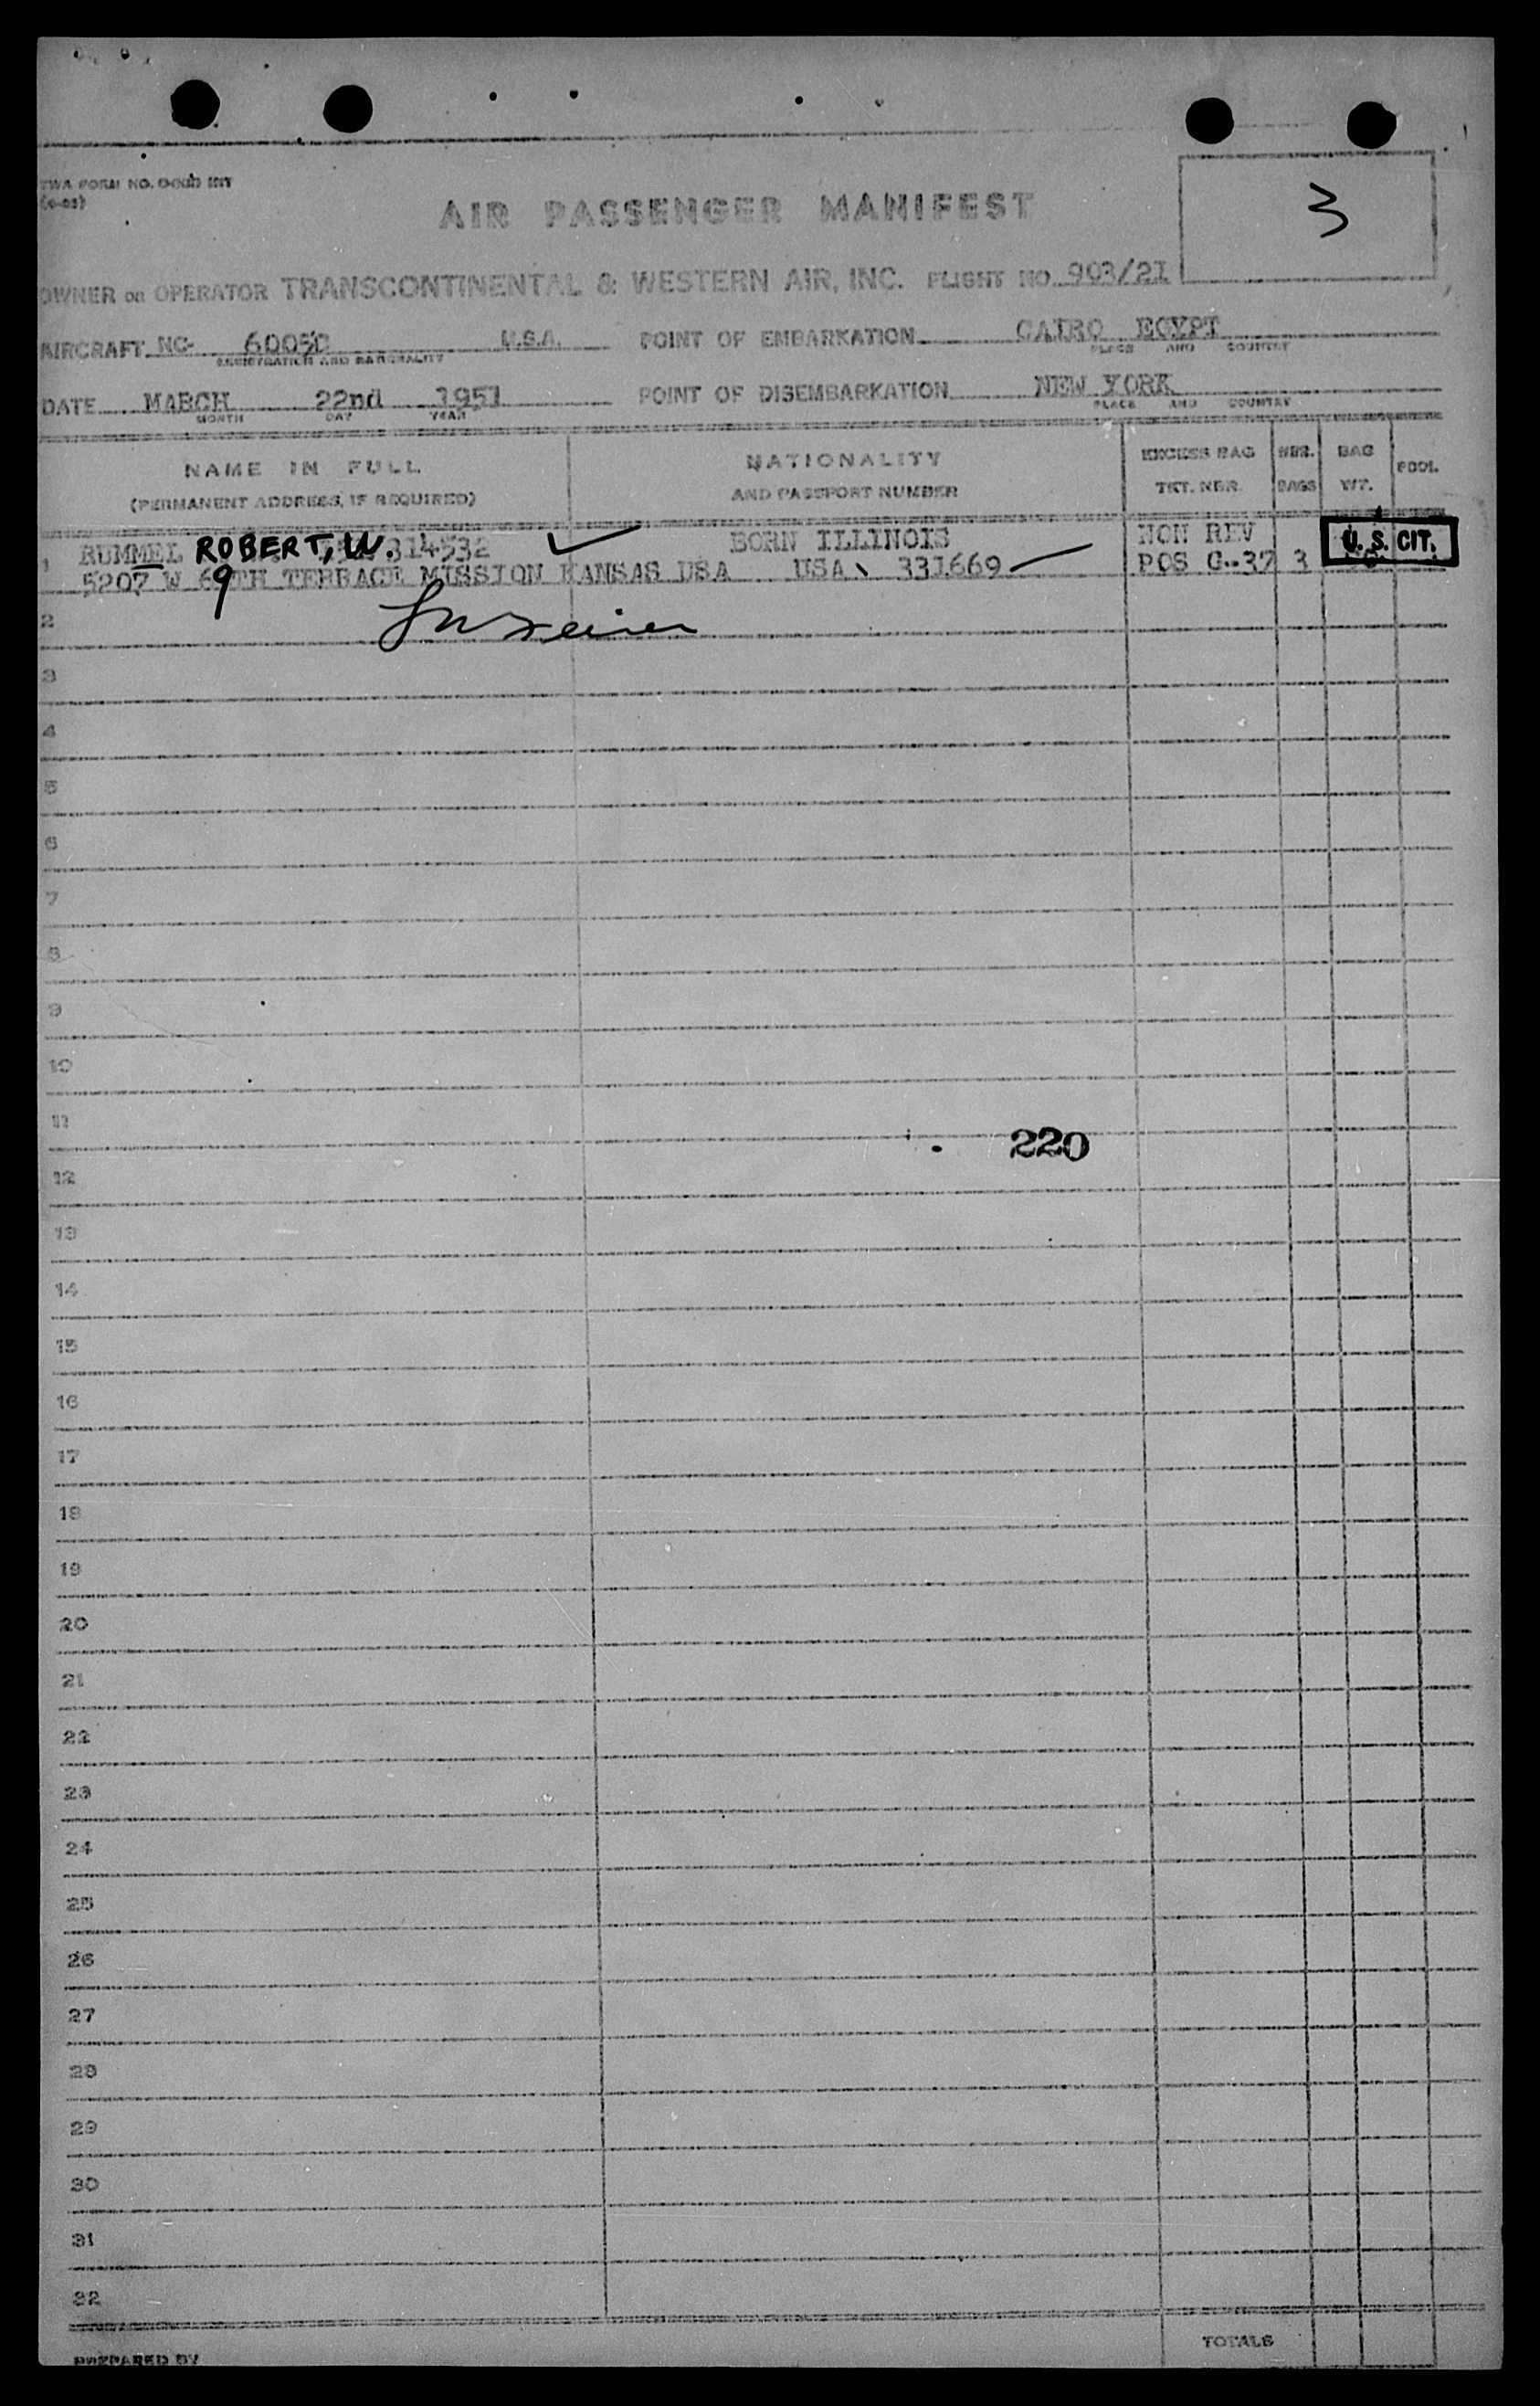 TWA FORM NO.
3
AIR PASSENGER MANIFEST
OWNER OR OPERATOR TRANSCONTINENTAL & WESTERN AIR, INC. FLIGHT NO. 903/21
AIRCRAFT NO. 6005C U.S.A. POINT OF EMBARKATION CAIRO EGYPT
REGISTRATION AND NATIONALITY PLACE AND COUNTRY
DATE MARCH 22nd 1951 POINT OF DISEMBARKATION NEW YORK
MONTH DAY YEAR PLACE AND COUNTRY
NAME IN FULL NATIONALITY EXCESS BAG NBR. BAG POOL
(PERMANENT ADDRESS, IF REQUIRED) AND PASSPORT NUMBER TKT. NBR. BAGS WT.
1 RUMMEL ROBERT, W. 314532 BORN ILLINOIS NON REV U. S. CIT.
5207 W 69TH TERRACE MISSION KANSAS USA USA 331669 POS G-37 3
2
3
4
5
6
7
8
9
10
11
220
12
13
14
15
16
17
18
19
20
21
22
23
24
25
26
27
28
29
30
31
32
TOTALS
PREPARED BY